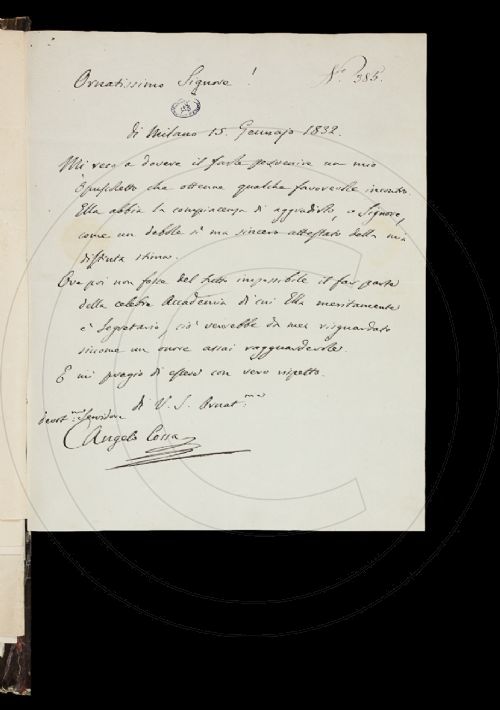 Ornatissimo Signore! N.º 385.
di Milano 15. Gennajo 1832.
Mi reco a dovere il farle pervenire un mio
Opuscoletto che ottenne qualche favorevole incontro.
Ella abbia la compiacenza di aggradirlo, o Signore,
come un debole sì ma sincero attestato della mia
distinta stima.
Ove poi non fosse del tutto impossibile il far parte
della celebre Accademia di cui Ella meritamente
è Segretario, ciò verrebbe da me risguardato
siccome un onore assai ragguardevole.
E mi pregio di essere con vero rispetto.
di V. S. Ornat.ma
devot.mo Servidore
Angelo Cossa